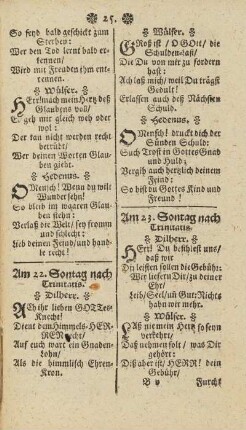 ❋ 25. ❋
So seyd bald geschickt zum
Sterben:
Wer den Tod lernt bald er-
kennen/
Wird mit Freuden ihm ent-
rennen.
❋ Wülfer. ❋
HErr! mach mein Hertz deß
Glaubens voll/
Es geh mir gleich weh oder
wol:
Der kan nicht werden recht
betrübt/
Wer deinen Worten Glau-
ben giebt.
❋ Hedenus. ❋
O Mensch! Wenn du wilt
Wunder sehn!
So bleib im wahren Glau-
ben stehn:
Verlaß die Welt/ sey fromm
und schlecht:
Lieb deinen Feind/ und hand-
le recht!
Am 22. Sontag nach
Trinitatis.
❋ Dilherr. ❋
Ach ihr lieben GOTTes-
Knecht!
Dienet dem Himmels-HER-
REN recht/
Auf euch wart ein Gnaden-
Lohn/
Als die himmlisch Ehren-
Kron.
❋ Wülfer. ❋
Groß ist/ O GOtt/ die
Schulden-last/
Die Du von mir zu fordern
hast:
Ach laß mich/ weil Du trägst
Gedult!
Erlassen auch deß Nächsten
Schuld.
❋ Hedenus. ❋
O Mensch! druckt dich der
Sünden Schuld:
Such Trost in Gottes Gnad
und Huld;
Vergib auch hertzlich deinem
Feind:
So bist du Gottes Kind und
Freund!
Am 23. Sontag nach
Trinitatis.
❋ Dilherr. ❋
HErr! Du befihlest uns/
daß wir
Dir leisten sollen die Gebühr:
Wer liefern Dir/ zu deiner
Ehr/
Leib/ Seel/ und Gut: Nichts
habn wir mehr.
❋ Wülfer. ❋
Laß nie mein Hertz so seyn
verkehrt;
Daß nehmen solt/ was Dir
gehört:
Diß aber ist/ HERR! dein
Gebühr/
B v Furcht